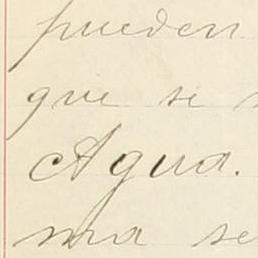 pueden
que se
Agua.
ma se